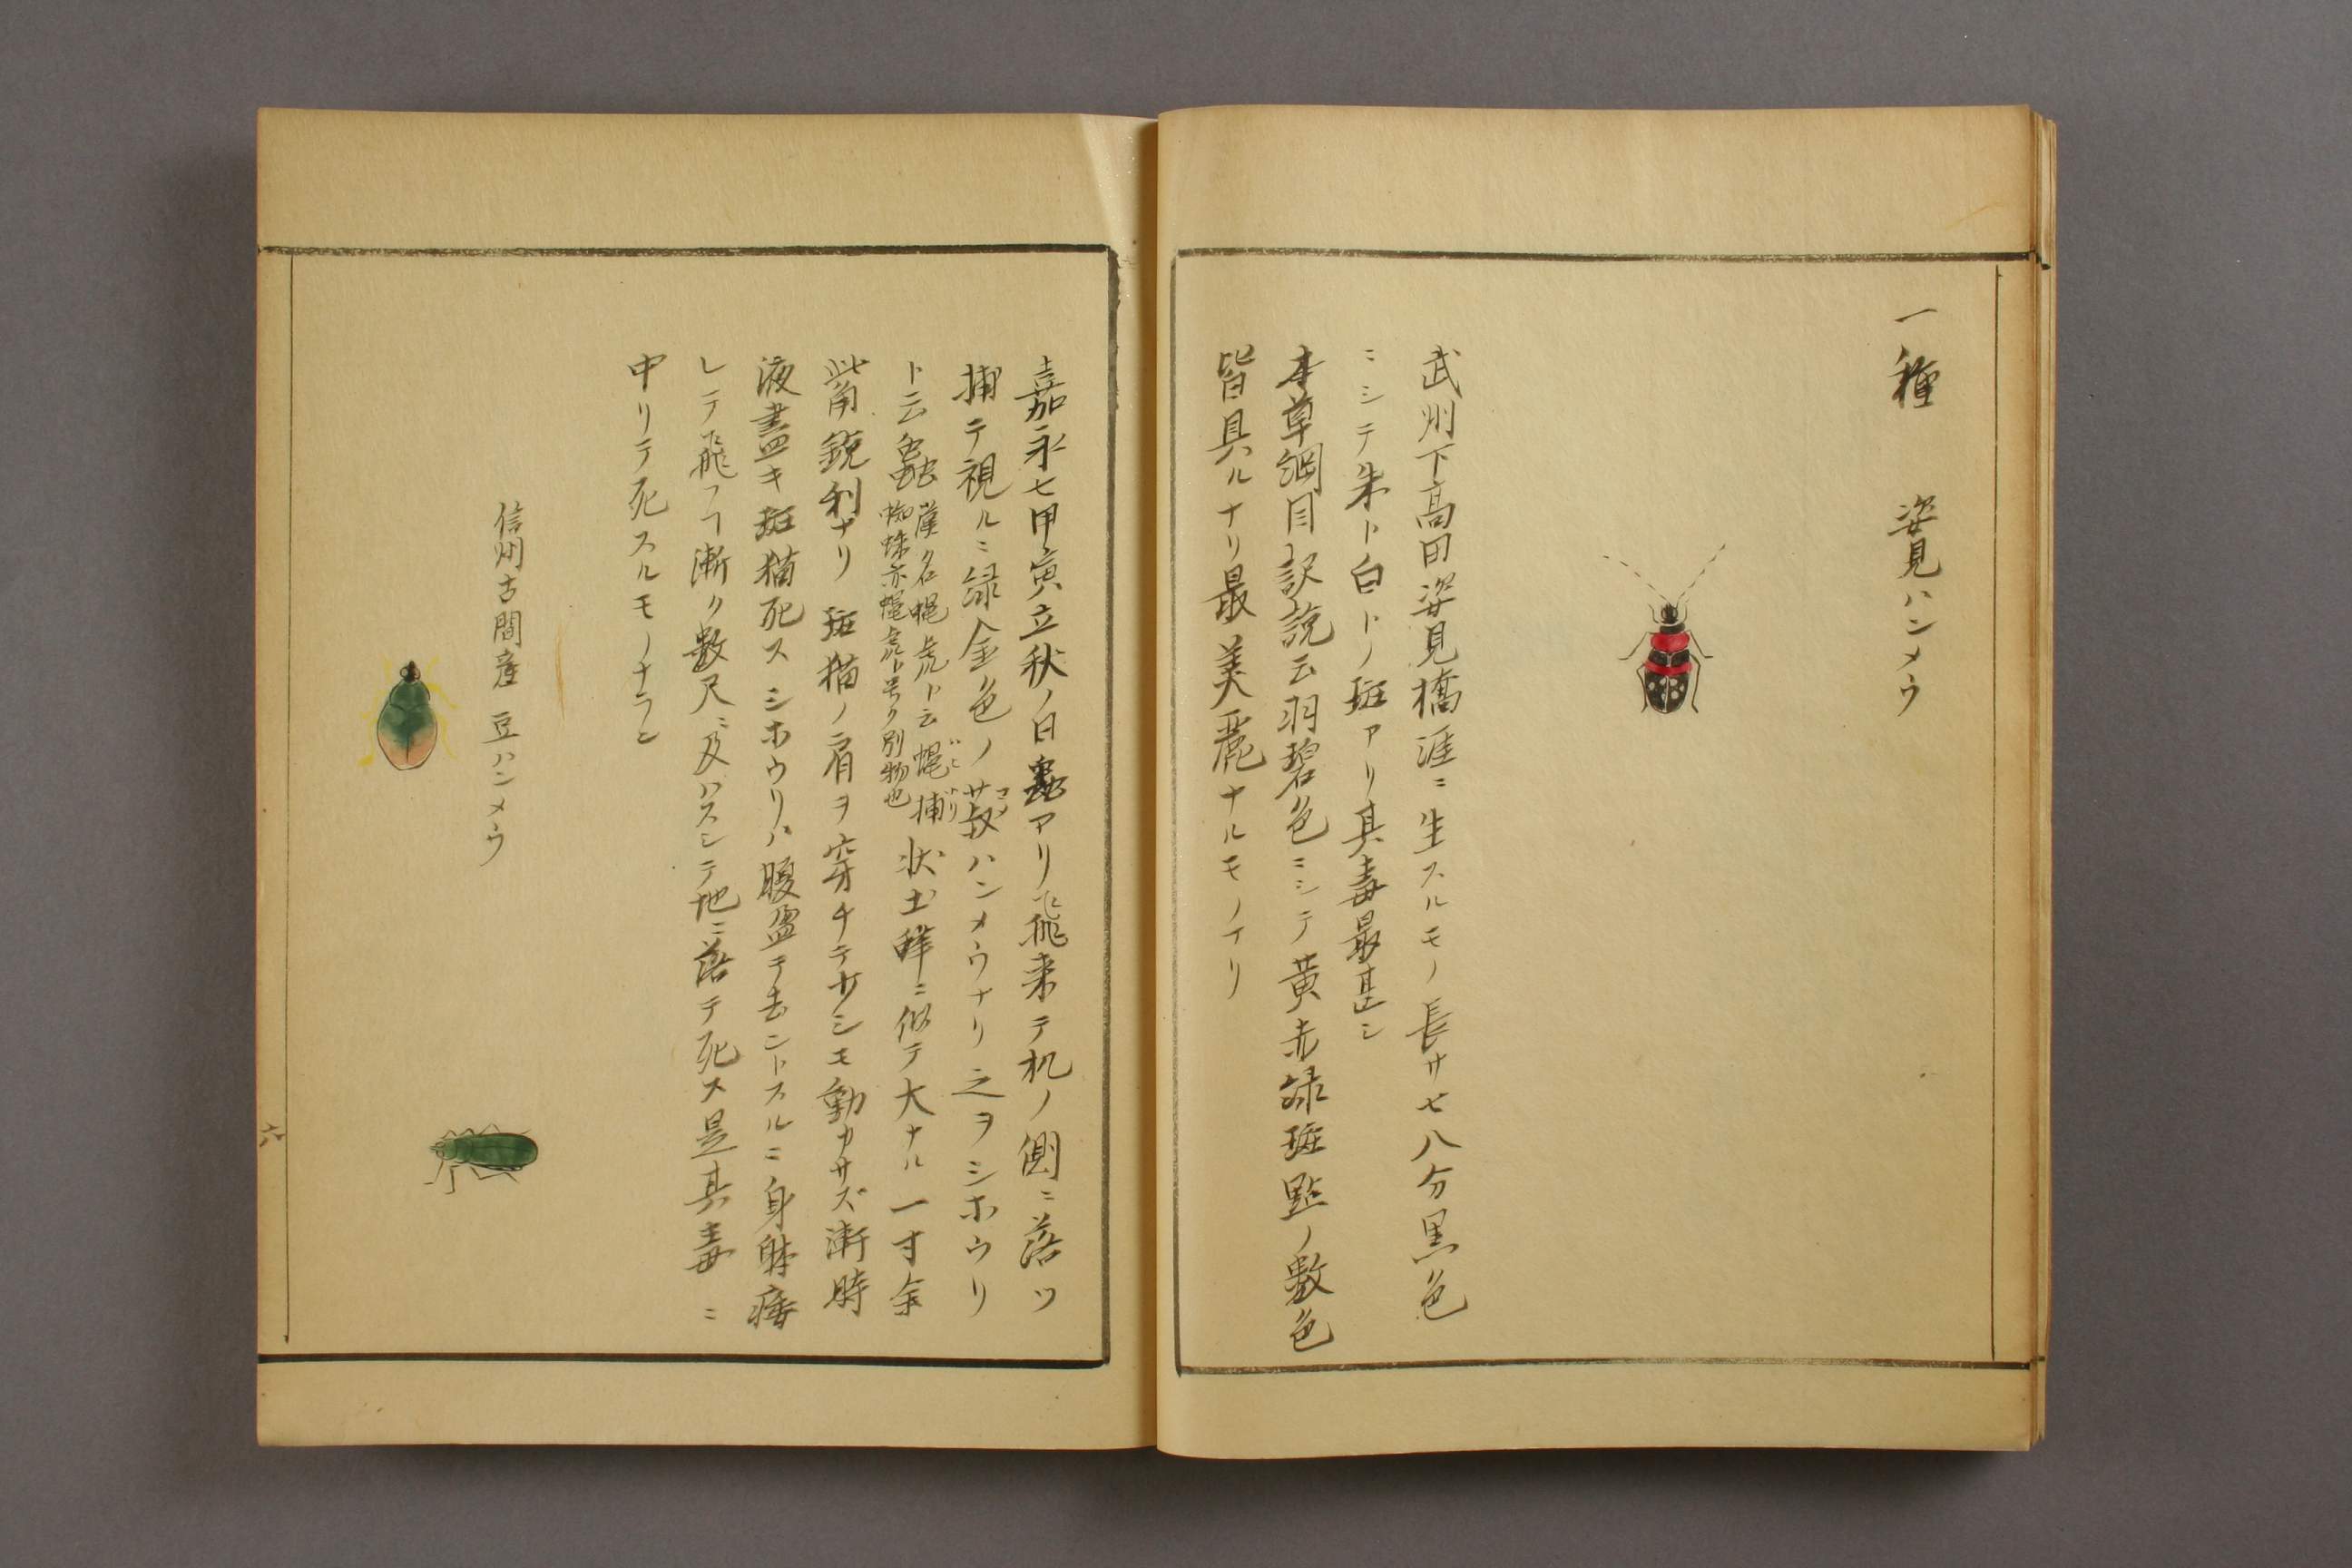 一種 姿見ハンメウ
武州下高田姿見橋涯ニ生スルモノ長サ七八分黒色
ニシテ朱ト白トノ斑アリ其毒最甚シ
本草綱目訳説云羽碧色ニシテ黄赤緑斑點ノ数色
皆具ルナリ最美麗ナルモノナリ
嘉永七甲寅立秋ノ日蟲アリ飛来テ机ノ側ニ落ツ
捕テ視ルニ緑金色ノ菽マメハンメウナリ之ヲシホウリ
ト云蟲
漢名蝿虎ト云蝿捕
蜘蛛亦蝿虎ト号ク別物也
状土蜂ニ似テ大ナル一寸余
觜鋭利ナリ斑猫ノ肩ヲ穿チテ少シモ動カサズ漸時
液盡キ斑猫死スシホウリハ腹盈テ去ントスルニ身躰痿
レテ飛フヿ漸ク數尺ニ及ハスシテ地ニ落テ死ス是其毒ニ
中リテ死スルモノナラン
信州古間産 豆ハンメウ
六